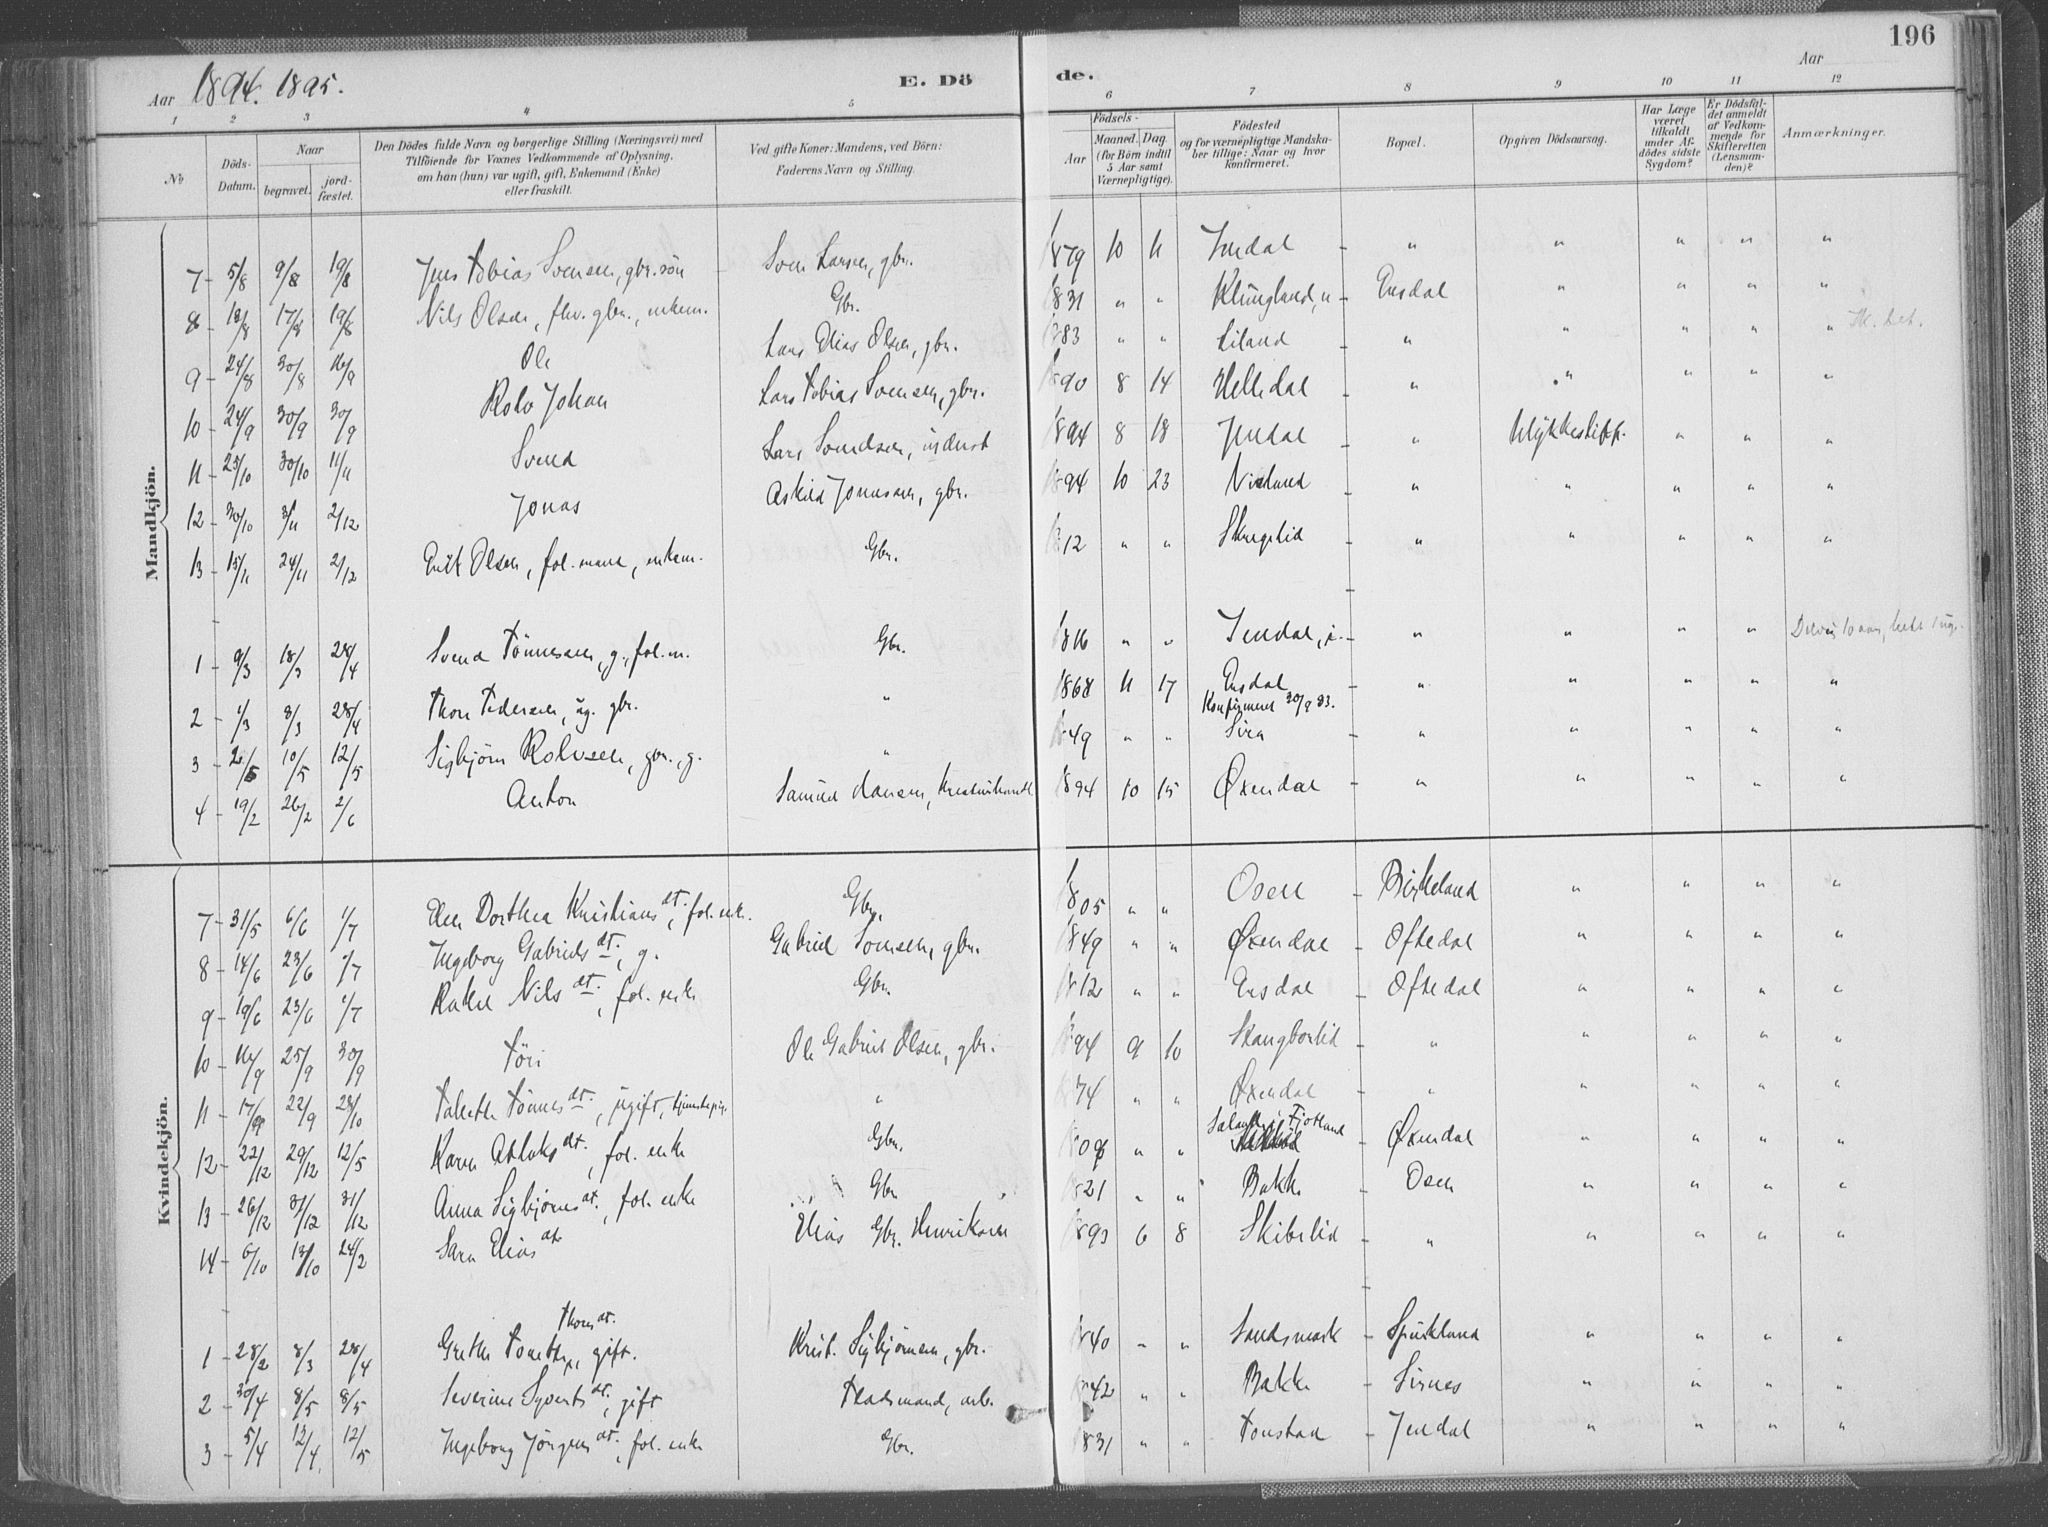 196
Aar 1894. 1895. E. Dö de. Aar
1 2 3 4 5 6 7 8 9 10 11 12
№ Döds-Datum. Naar begravet. jordfæstet. Den Dödes fulde Navn og borgerlige Stilling (Næringsvei) med Tilföiende for Voxnes Vedkommende af Oplysning, om han (hun) var ugift, gift, Enkemand (Enke) eller fraskilt. Ved gifte Koner: Mandens, ved Börn: Faderens Navn og Stilling. Födsels- Aar Maaned. Dag. (for Börn indtil 5 Aar samt Værnepligtige). Födested og for værnepligtige Mandskaber tillige: Naar og hvor konfirmeret. Bopæl. Opgiven Dödsaarsag. Har Læge været tilkaldt under Afdödes sidste Sygdom? Er Dödsfaldet anmeldt af Vedkommende for Skifteretten (Lensmanden)? Anmærkninger.
Mandkjön.
7 - 5/8 9/8 19/8 Jens Tobias Svensen, gbr. sön Sven Larsen, gbr. 1879 10 11 Jendal - " " " " "
8 - 13/8 17/8 19/8 Nils Olsen, fhv. gbr., enkem. Gbr. 1831 " " Klungland, - Ersdal " " " "
9 - 24/8 30/8 16/9 Ole Lars Elias Olsen, gbr. 1883 " " Liland - " " " " "
10 - 24/9 30/9 30/9 Rolv Johan Lars Tobias Svensen, gbr. 1890 8 14 Helledal " " " " "
11 - 23/10 30/10 11/11 Svend Lars Svendsen, inderst 1894 8 18 Jendal - " " " "
12 - 30/10 3/11 2/12 Jonas Askild Jonassen, gbr. 1894 10 23 - " " " " "
13 - 15/11 24/11 2/12 Erik Olsen, fol. mand, enkem. Gbr. 1812 " " - " " " " "
1 - 9/3 18/3 28/4 Svend Tönnesen, g., fol. m. Gbr. 1816 " " Jendal, - " " " "
2 - 1/3 8/3 28/4 Thore Pedersen, ug. gbr. " 1868 11 17 Ersdal - " " " " "
Konfirmeret 30/9 83.
3 - 2/5 10/5 12/5 Sigbjörn Rolvsen, gbr., g. " 1849 " " Sira - " " " " "
4 - 19/2 26/2 2/6 Anton Samuel Hansen, 1894 10 15 Øxendal - " " " " "
Kvindekjön.
7 - 31/5 6/6 1/7 Elen Dorthea Kristiansdt., fol. enk. Gbr. 1805 " " Osen - Birkeland " " " "
8 - 14/6 23/6 1/7 Ingeborg Gabrielsdt., g. Gabriel Svensen, gbr. 1849 " " Øxendal - Oftedal " " " "
9 - 19/6 23/6 1/7 Rakel Nilsdt., fol. enke Gbr. 1812 " " Ersdal - Oftedal " " " "
10 - 16/9 25/9 30/9 Töri Ole Gabriel Olsen, gbr. 1894 9 10 - " " " " "
11 - 17/9 22/9 28/10 Taletha Tönnesdt., ugift, tjenestepige " 1874 " " Øxendal - " " " " "
12 - 22/12 29/12 12/5 Karen Atlaksdt., fol. enke Gbr. 180 " " Fjotland - Øxendal " " " "
13 - 26/12 31/12 31/12 Anna Sigbjörnsdt., fol. enke Gbr. 1821 " " Bakke - Osen " " " "
14 - 6/10 13/10 24/2 Sara Eliasdt. Elias Gbr. Henriksen 1893 6 8 Skibelid - " " " " "
1 - 28/2 8/3 28/4 Grethe Tonetta Thorsdt., gift. Krist. Sigbjörnsen, gbr. 1840 " " Sandsmark - Spikkeland " " " "
2 - 30/4 8/5 8/5 Severine Syvertsdt., gift Pladsmand, arb. 1842 " " Bakke - Sirnes " " " "
3 - 5/4 13/4 12/5 Ingeborg Jörgensdt., fol. enke Gbr. 1831 " " Tonstad - Jendal " " " "